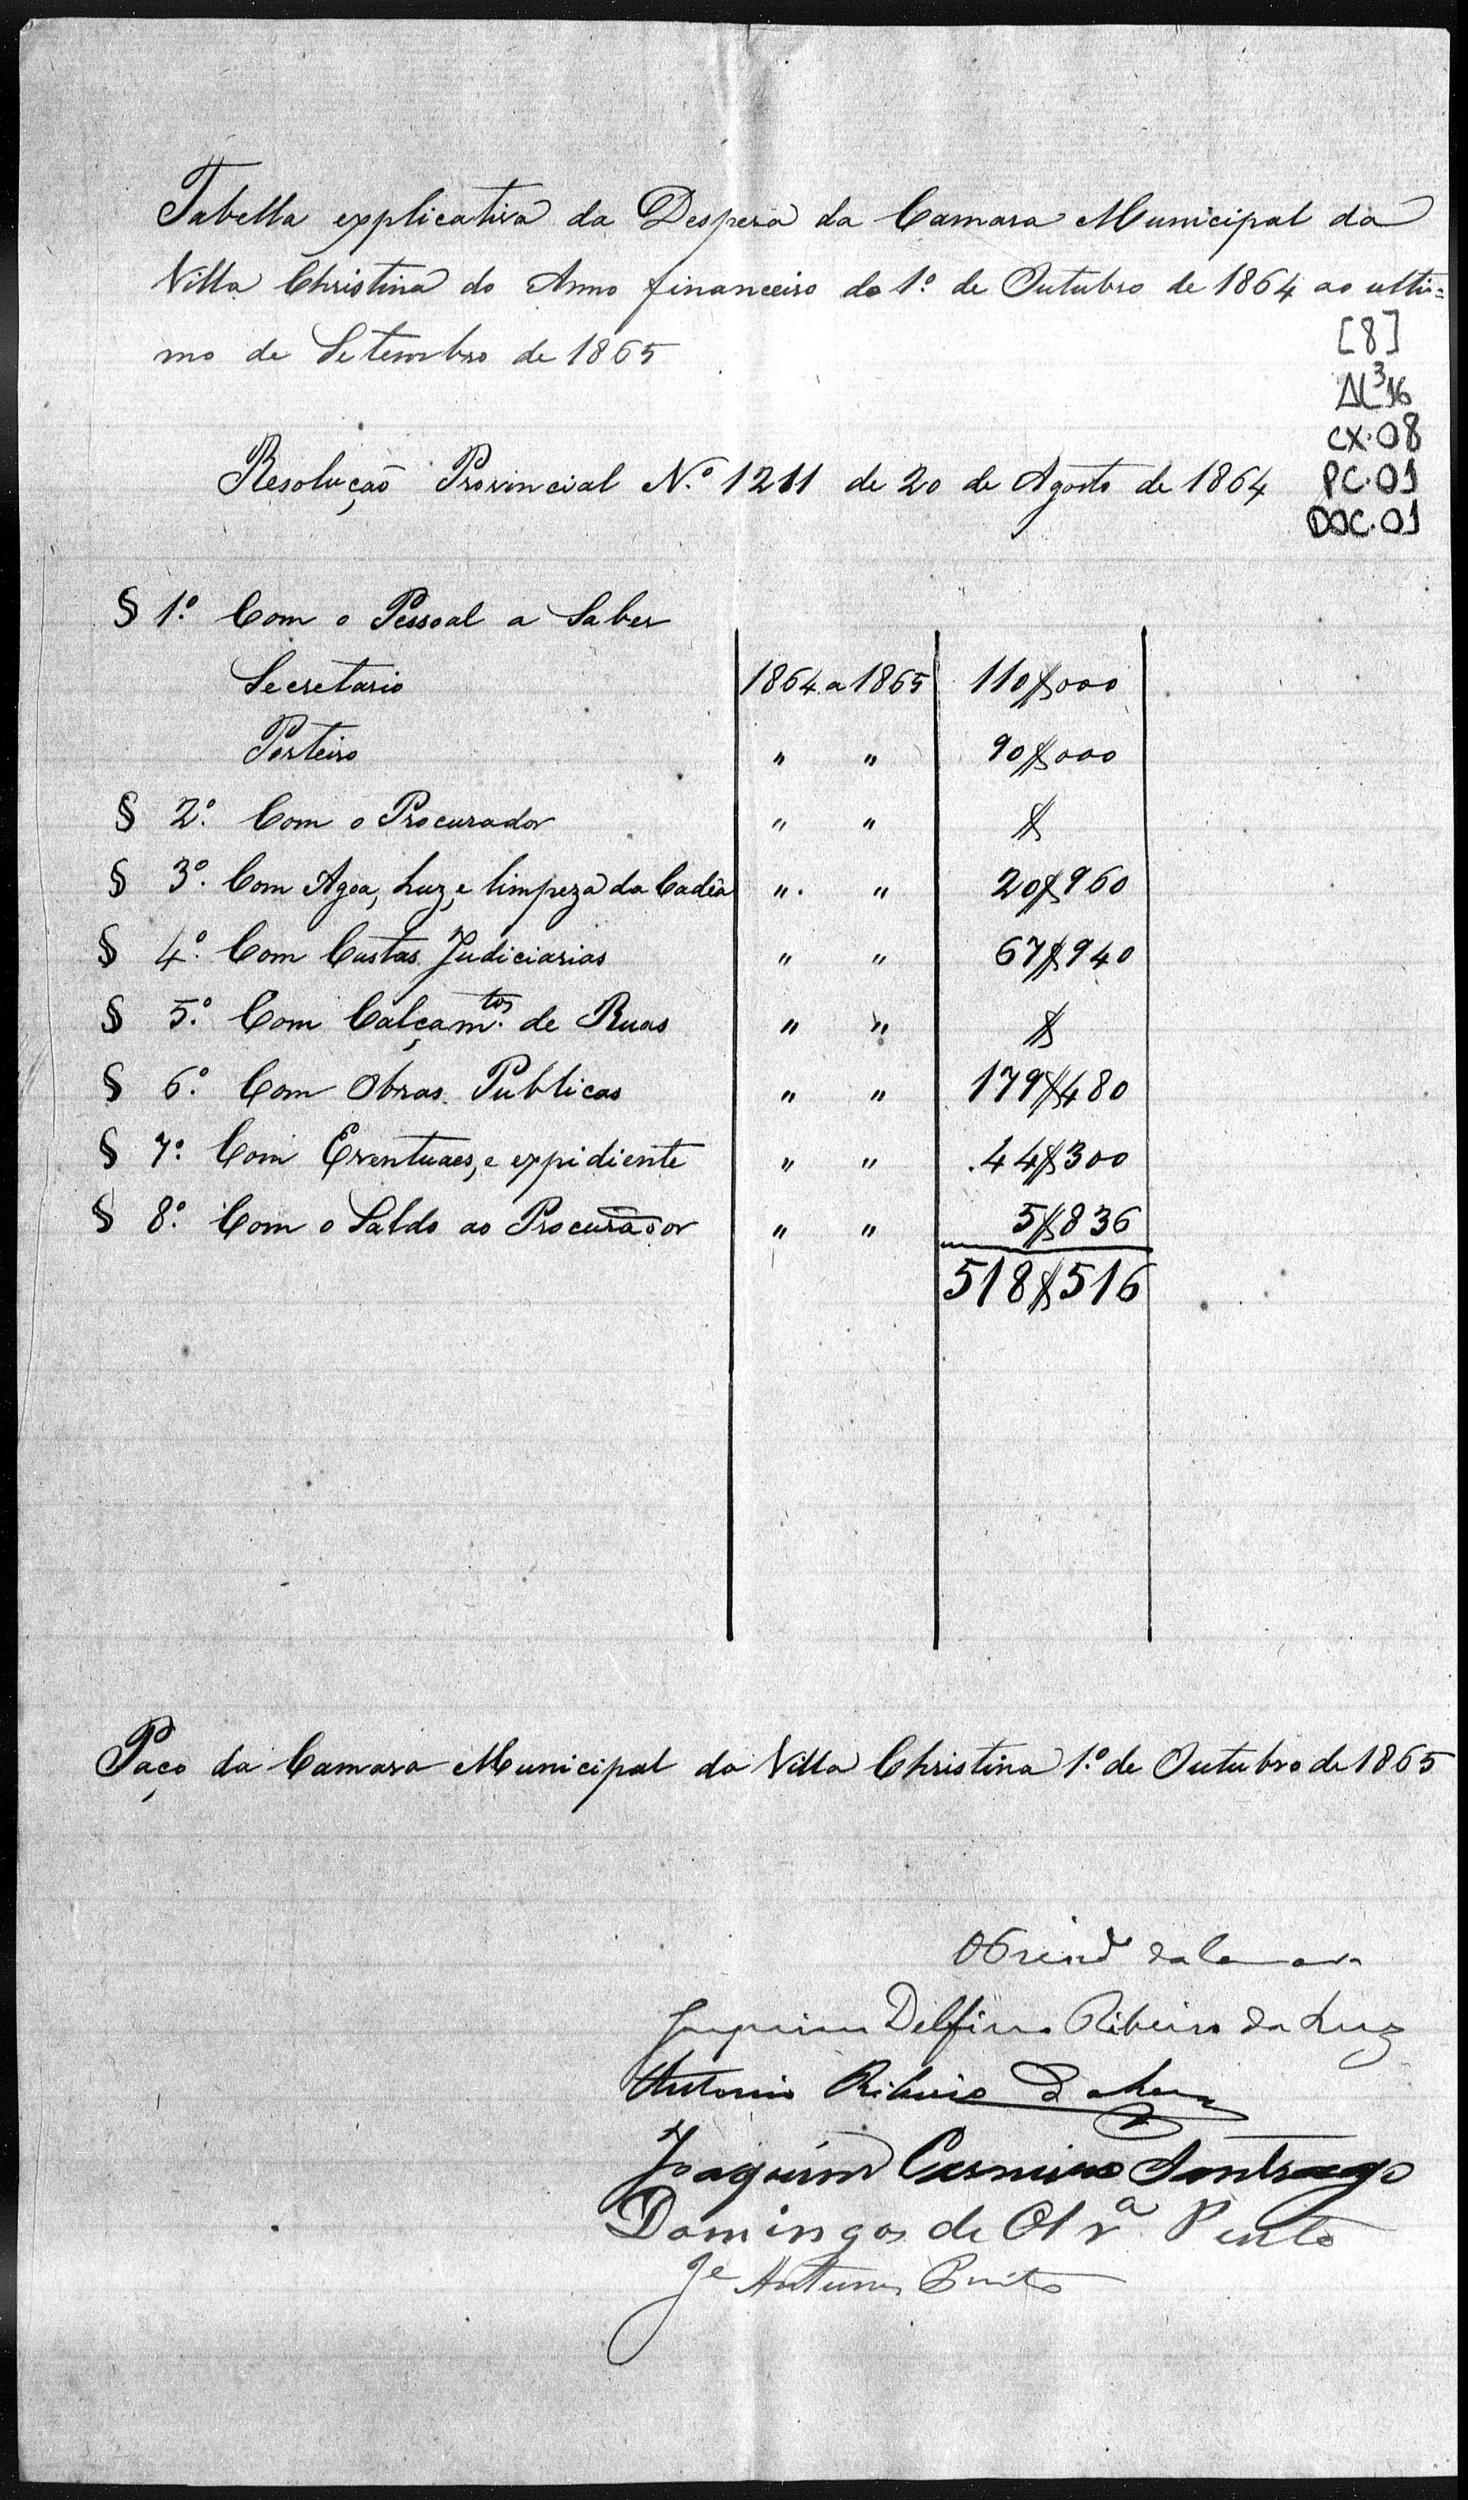 Tabella explicativa da Despesa da Camara Municipal da
Villa Christina do Anno financeiro do 1º de Outubro de 1864 ao ulti=
mo de Setembro de 1865
[8]
AL³16
CX.08
PC.01
DOC.01
Resolução Provincial N.º 1211 de 20 de Agosto de 1864
§ 1º Com o Pessoal a Saber
Secretario 1864 a 1865 110$000
Porteiro " " 90$000
§ 2º. Com o Procurador " " $
§ 3º. Com Agoa, Luz, e limpeza da Cadêa " " 20$960
§ 4º. Com Custas Judiciarias " " 67$940
§ 5º. Com Calçam.tos de Ruas " " $
§ 6º. Com Obras Publicas " " 179$480
§ 7º. Com Eventuaes, e expidiente " " 44$300
§ 8º. Com o Saldo ao Procurador " " 5$836
518$516
Paço da Camara Municipal da Villa Christina 1.º de Outubro de 1865
da Camara
Joaquim Delfino Ribeiro da Luz
Antonio Ribeiro da Luz
Joaquim Santiago
Domingos de Olvª Pinto
Je Antunes